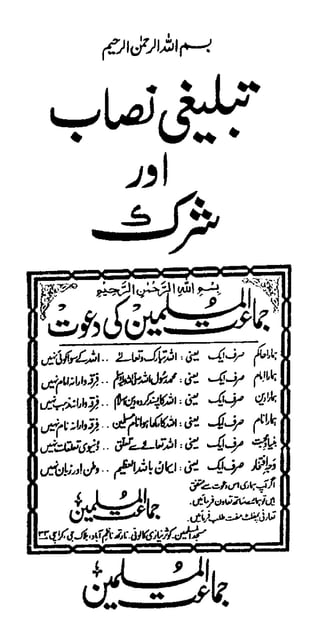 بسم اللہ الرحمٰن الرحیم
تبلیغی نصاب
اور
شرک
بِسْمِ اللّٰہِ الرَّحْمٰنِ الرَّحِیْمِ
جماعت المسلمین کی دعوت
ہمارا حاکم صرف ایک یعنی: اللہ تبارک وتعالےٰ .. اللہ کے سوا کوئی نہیں
ہمارا امام صرف ایک یعنی: محمد رسول اللہ صلی اللہ علیہ وسلم .. فرقہ وارانہ امام نہیں
ہمارا دین صرف ایک یعنی: اللہ کا پسند کردہ دین اسلام .. فرقہ وارانہ مذہب نہیں
ہمارا نام صرف ایک یعنی: اللہ کا رکھا ہوا نام مسلمین .. فرقہ وارانہ نام نہیں
بنیادِ محبت صرف ایک یعنی: اللہ تعالےٰ سے تعلق .. دنیوی تعلقات نہیں
وجہِ افتخار صرف ایک یعنی: ایمان باللہ العظیم .. وطن اور زبان نہیں
اگر آپ ہماری اس دعوت سے متفق
ہیں تو ہمارے ساتھ تعاون فرمائیں۔
تعارفی پمفلٹ مفت طلب فرمائیں۔
جماعت المسلمین
مسجد المسلمین، کوثر نیازی کالونی، نارتھ ناظم آباد، بلاک جی، کراچی ۳۳
جماعت المسلمین